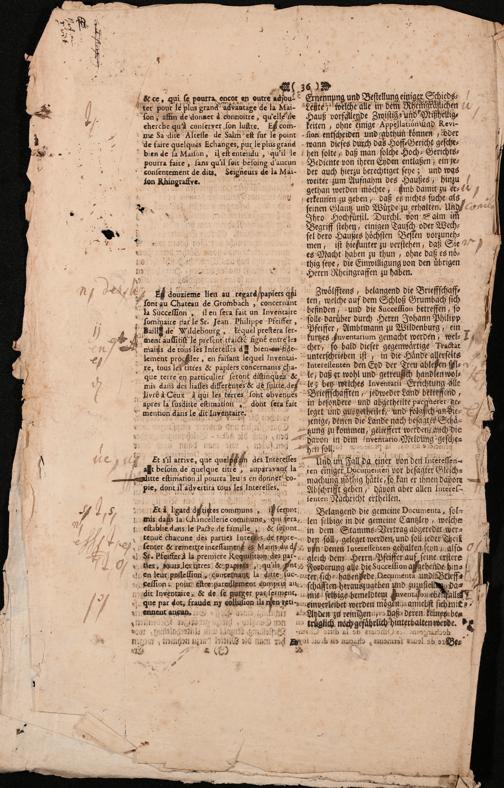 ( 36 )
& ce, qui se pourra encor en outre adjou-
ter pour le plus grand advantage de la Mai-
son, affin de donner à connoitre, qu'elle ne
cherche qu'à conserver son lustre. Et com-
me Sa dite Altesse de Salm est sur le point
de faire quelques Echanges, pur le plus grand
bien de la Maison, il est entendu, qu'il le
pourra faire, sans qu'il fait besoing d'aucun
consentement de dits Seigneurs de la Mai-
son Rhingraffve.
En douzieme lieu au regard papiers qui
sont au Chateau de Grombach, concernant
la Succession, il en sera fait un Inventaire
sommaire par le Sr. Jean Philippe Pfeiffer,
Bailli de Wildebourg, lequel prestera ser-
ment aussitôt le present traicté signé entre les
mains de tous les Interessés bien fide-
lement proceder, en faisant lequel Inventai-
re, tous les titres & papiers concernants cha-
que terre en particulier seront distingués &
mis dans des liasses differentes & de suite de-
livré à Ceux à qui les terres sont obvenues
après la susdite estimation, dont sera fait
mention dans le dit Inventaire.
Et s'il arrive, que quelqu'un des Interessés
ait besoin de quelque titre, auparavant la
dite estimation il pourra leur en donner co-
pie, dont il advertira tous les Interessés.
Et à l'égard des titres communs, ils seront
mis dans la Chancellerie commune, qui sera
establie dans le Pacte de famille, & seront
tenue chacune des parties Interessés de repre-
senter & remettre incessamment és Mains du dit
Sr. Pfeiffer à la premiere Requisition des par-
ties, tous les titres & papiers, qu'ils ont
en leur possession, concernant la dite suc-
cession, pour estre pareillement compris au
dit Inventaire, & de se purger par serment,
que par dol, fraude ny collusion ils n'en reti-
ennent aucun.
Ernennung und Bestellung einiger Schieds-
Leute, welche alle in dem Rheingräfflichen
Hauß vorfallende Zwistig- und Mißhellig-
keiten, ohne einige Appellation und Revi-
sion entscheiden und abthun können, oder
wann dieses durch das Hoff-Gericht gesche-
hen solte, daß man solche Hoch-Gerichts-
Bediente von ihren Eyden entlassen, ein je-
der auch hierzu berechtiget seye; und was
weiter zum Aufnahm des Hauses, hinzu
gethan werden möchte, und damit zu er-
erkennen zu geben, daß es nichts suche als
seinen Glantz und Würde zu erhalten. Und
Ihro Hochfürstl. Durchl. von Salm im
Begriff stehen, einigen Tausch oder Wech-
sel dero Hauses höchsten Besten vorzuneh-
men, ist hierunter zu verstehen, daß Sie
es Macht haben zu thun, ohne daß es nö-
thig seye, die Einwilligung von den übrigen
Herrn Rheingraffen zu haben.
Zwölfftens, belangend die Brieffschaff-
ten, welche auf dem Schloß Grumbach sich
befinden, und die Succession betreffen, so
solle darüber durch Herrn Johann Philipp
Pfeiffer, Ambtmann zu Wildenburg, ein
kurtzes Inventarium gemacht werden, wel-
cher, so bald dieser gegenwärtige Tractat
unterschrieben ist, in die Hände allerseits
Interessenten den Eyd der Treu ablegen sol-
le, daß er wohl und getreulich handlen wol-
le; bey welches Inventarii Errichtung alle
Brieffschafften, jedweder Land betreffend,
in besondere und abgetheilte paqueter ge-
leget und ausgetheilet, und folglich an die-
jenige, denen die Lande nach besagter Schä-
tzung zu kommen, geliefert werden, auch die
davon in dem Inventario Meldung gesche-
hen soll.
Und im Fall da einer von den Interessen-
ten einiger Documenten vor besagter Gleich-
machung nöthig hätte, so kan er ihnen davon
Abschrifft geben, davon aber allen Interes-
senten Nachricht ertheilen.
Belangend die gemeine Documenta, sol-
len selbige in die gemeine Cantzley, welche
in dem Stamms-Vertrag abgeredet wer-
den soll, geleget werden, und soll jeder Theil
von denen Interessenten gehalten seyn, also
gleich dem Herrn Pfeiffer auf seine erstere
Forderung alle die Succession angehende hin-
ter sich habende Documenta und Brieff-
schafften herauszugeben und zustellen, da-
mit selbige bemeldtem Inventario ebenfalls
einverleibet werden mögen, annebst sich mit
Ayden zu reinigen, daß deren keines be-
trüglich noch gefährlich hinterhalten werde.
Be-